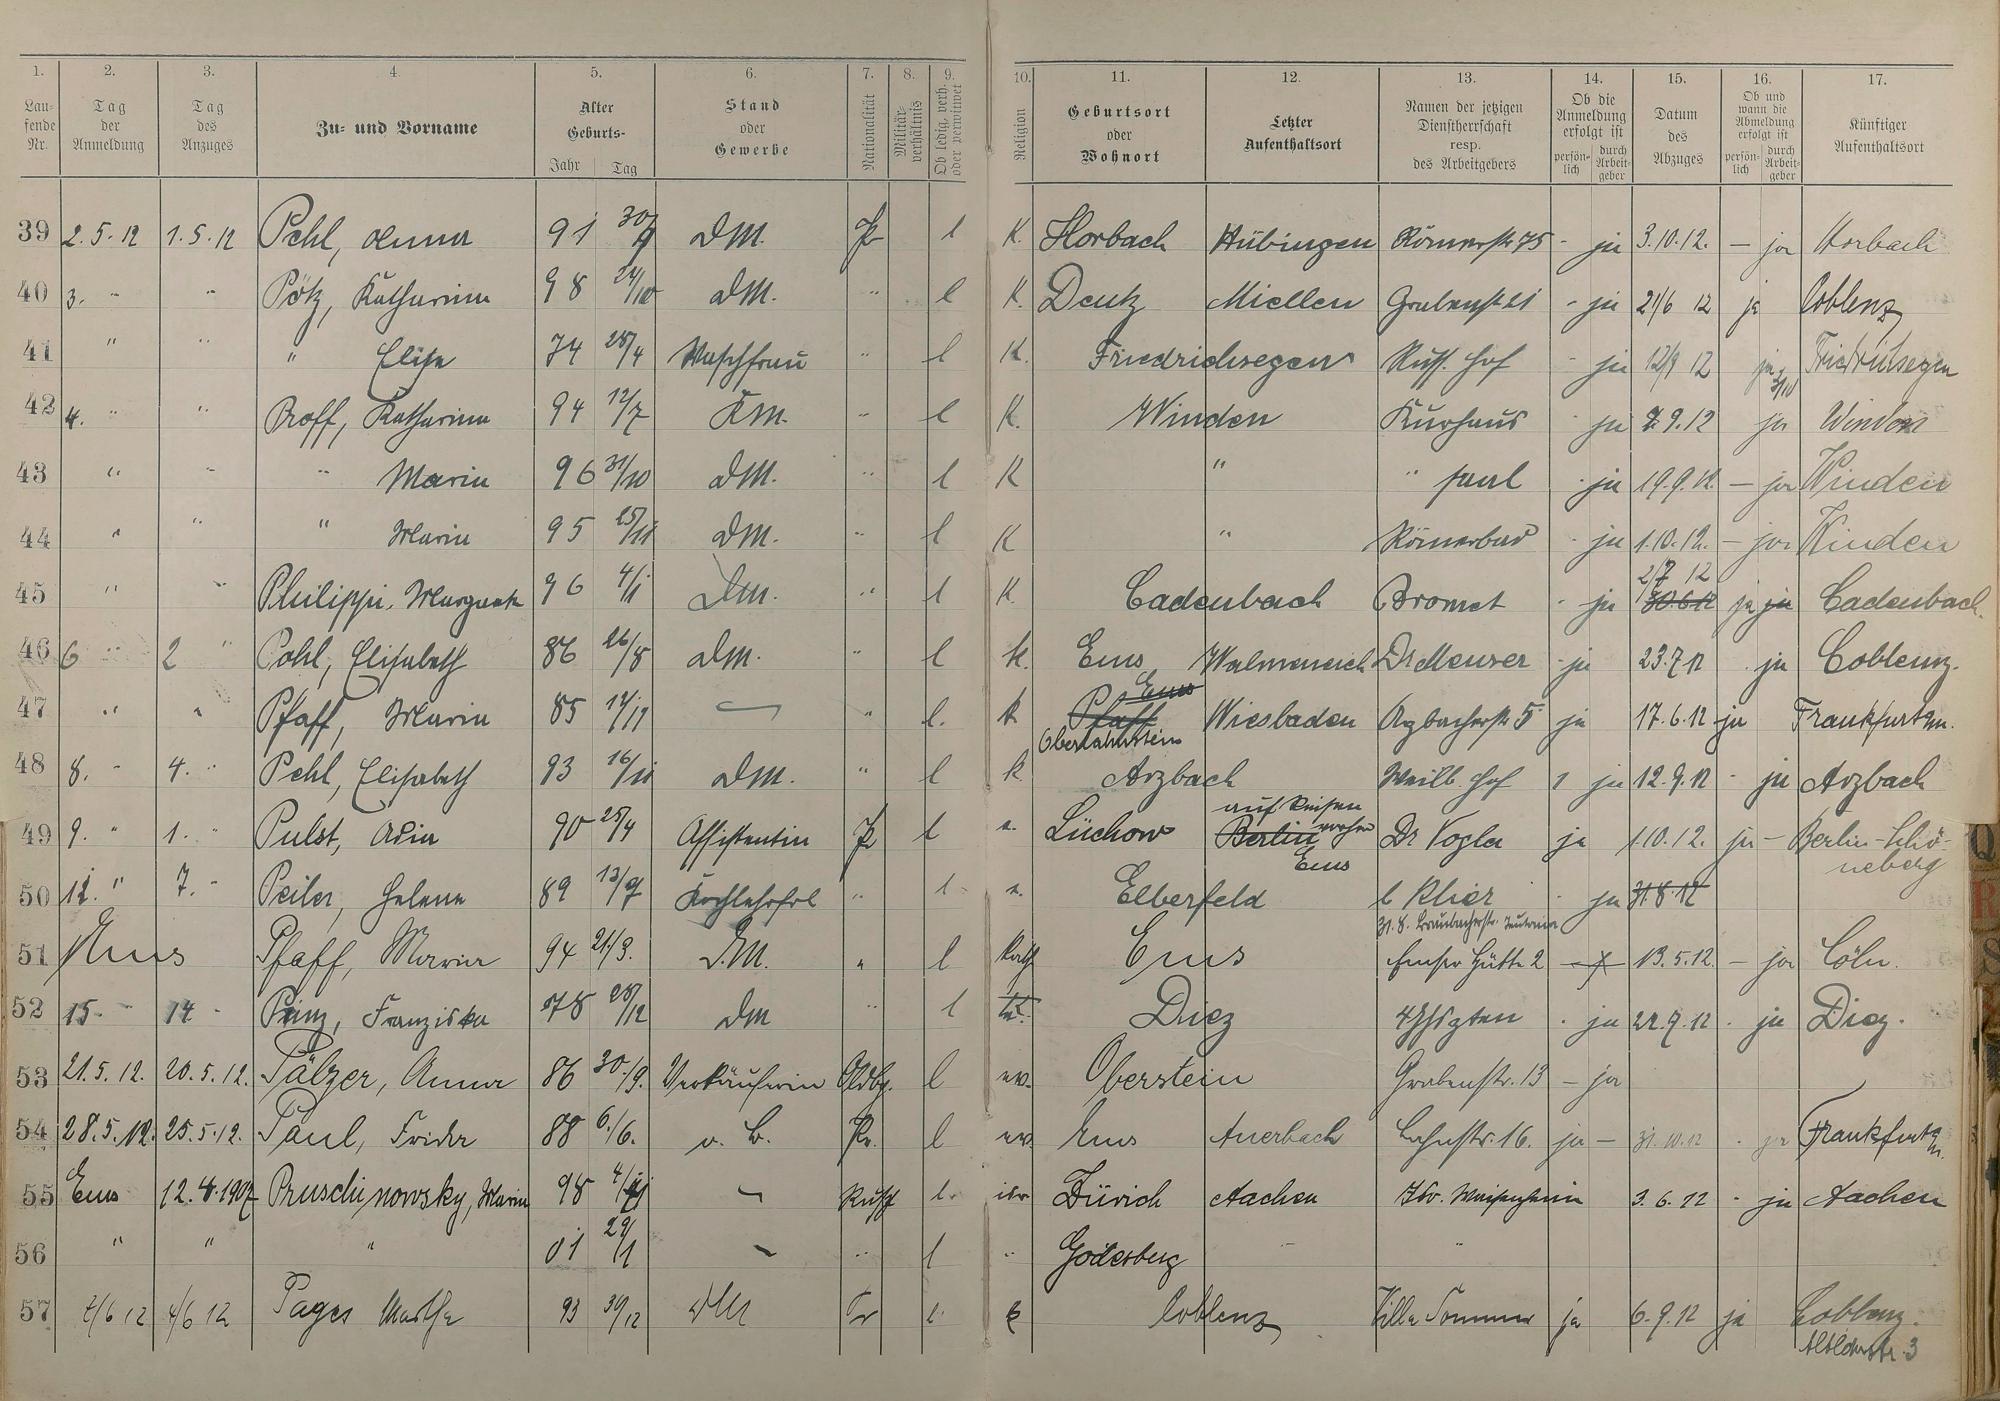 1. 2. 3. 4. 5. 6. 7. 8. 9. 10. 11. 12. 13. 14. 15. 16. 17.
Lau-fende Nr. Tag der Anmeldung Tag des Anzuges Zu- und Vorname Alter Geburts- Jahr Tag Stand oder Gewerbe Nationalität Militär-verhältnis Ob ledig, verh. oder verwitwet Religion Geburtsort oder Wohnort Letzter Aufenthaltsort Namen der jetzigen Dienstherrschaft resp. des Arbeitgebers Ob die Anmeldung erfolgt ist persön-lich durch Arbeit-geber Datum des Abzuges Ob und wann die Abmeldung erfolgt ist persön-lich durch Arbeit-geber Künftiger Aufenthaltsort
39 2.5.12 1.5.12 Pehl, Anna 91 30/9 DM. Pr l K. Horbach Hübingen Römerstr 75 - ja 3.10.12. - ja Horbach
40 3. " " Pötz, Katharina 98 24/10 DM. " l K. Deutz Miellen Grabenstr 21 - ja 21/6 12 ja Coblenz
41 " " " Elise 74 28/4 Waschfrau " l K. Friedrichsegen Russ. Hof - ja 12/9 12 ja Friedrichsegen
42 4. " " Proff, Katharina 94 12/7 KM. " l K. Winden Kurhaus - ja 7.9.12 ja Winden
43 " " " Maria 96 31/10 DM. " l K " " - ja 19.9.12. - ja Winden
44 " " " Maria 95 25/11 DM. " l K " Römerbad - ja 1.10.12. - ja Winden
45 " " Philippi, Margareta 96 4/1 DM. " l K. Cadenbach Bromet - ja 2/7 12 30.6.12 ja ja Cadenbach
46 6 " 2 " Pohl, Elisabeth 86 26/8 DM. " l k. Ems Walmeneich Dr Meuser - ja 23.7.12 . ja Coblenz.
47 " " Pfaff, Maria 85 14/11 — " l. k Ems Pfaff Oberlahnstein Wiesbaden Arzbacherstr 5 ja 17.6.12 ja Frankfurt a/m.
48 8. " 4. " Pehl, Elisabeth 93 16/11 DM. " l k Arzbach Weilb. Hof ja 12.9.12 - ja Arzbach
49 9. " 1. " Pulst, Adia 90 25/4 Assistentin Pr l e. Lüchow auf Reisen Berlin vorher Ems Dr Vogler ja 1.10.12. ja - Berlin-Schö-neberg
50 12. " 7. " Peiler, Helene 89 13/9 Kochlehrfrl " l e. Elberfeld b Rhier - ja 31.8.12
31.8.
51 Ems Pfaff, Maria 94 21./3. D.M. " l Kath Ems Emser Hütte 2 13.5.12. - ja Cöln.
52 15. " 14 " Prinz, Franziska 78 28/12 DM " l Diez 4 Jhszten . ja 22.9.12 . ja Diez.
53 21.5.12. 20.5.12. Pälzer, Anna 86 30./9. Verkäuferin Oldbg. l ev. Oberstein Grabenstr. 13 - ja
54 28.5.12. 25.5.12. Paul, Frieda 88 6./6. o. B. Pr. l ev. Ems Auerbach Lahnstr. 16. ja - 31.10.12 . ja Frankfurt a/m.
55 Ems 12.4.1907 Pruschinowsky, Maria 98 Russ l. isr Zürich Aachen Isr. Waisenheim 3.6.12 - ja Aachen
56 " " " 01 29/1 " l " Godesberg - "
57 7/6 12 4/6 12 Pages Martha 93 30/12 DM Pr l. k Coblenz Villa Sommer ja 6.9.12 ja Coblenz.
3